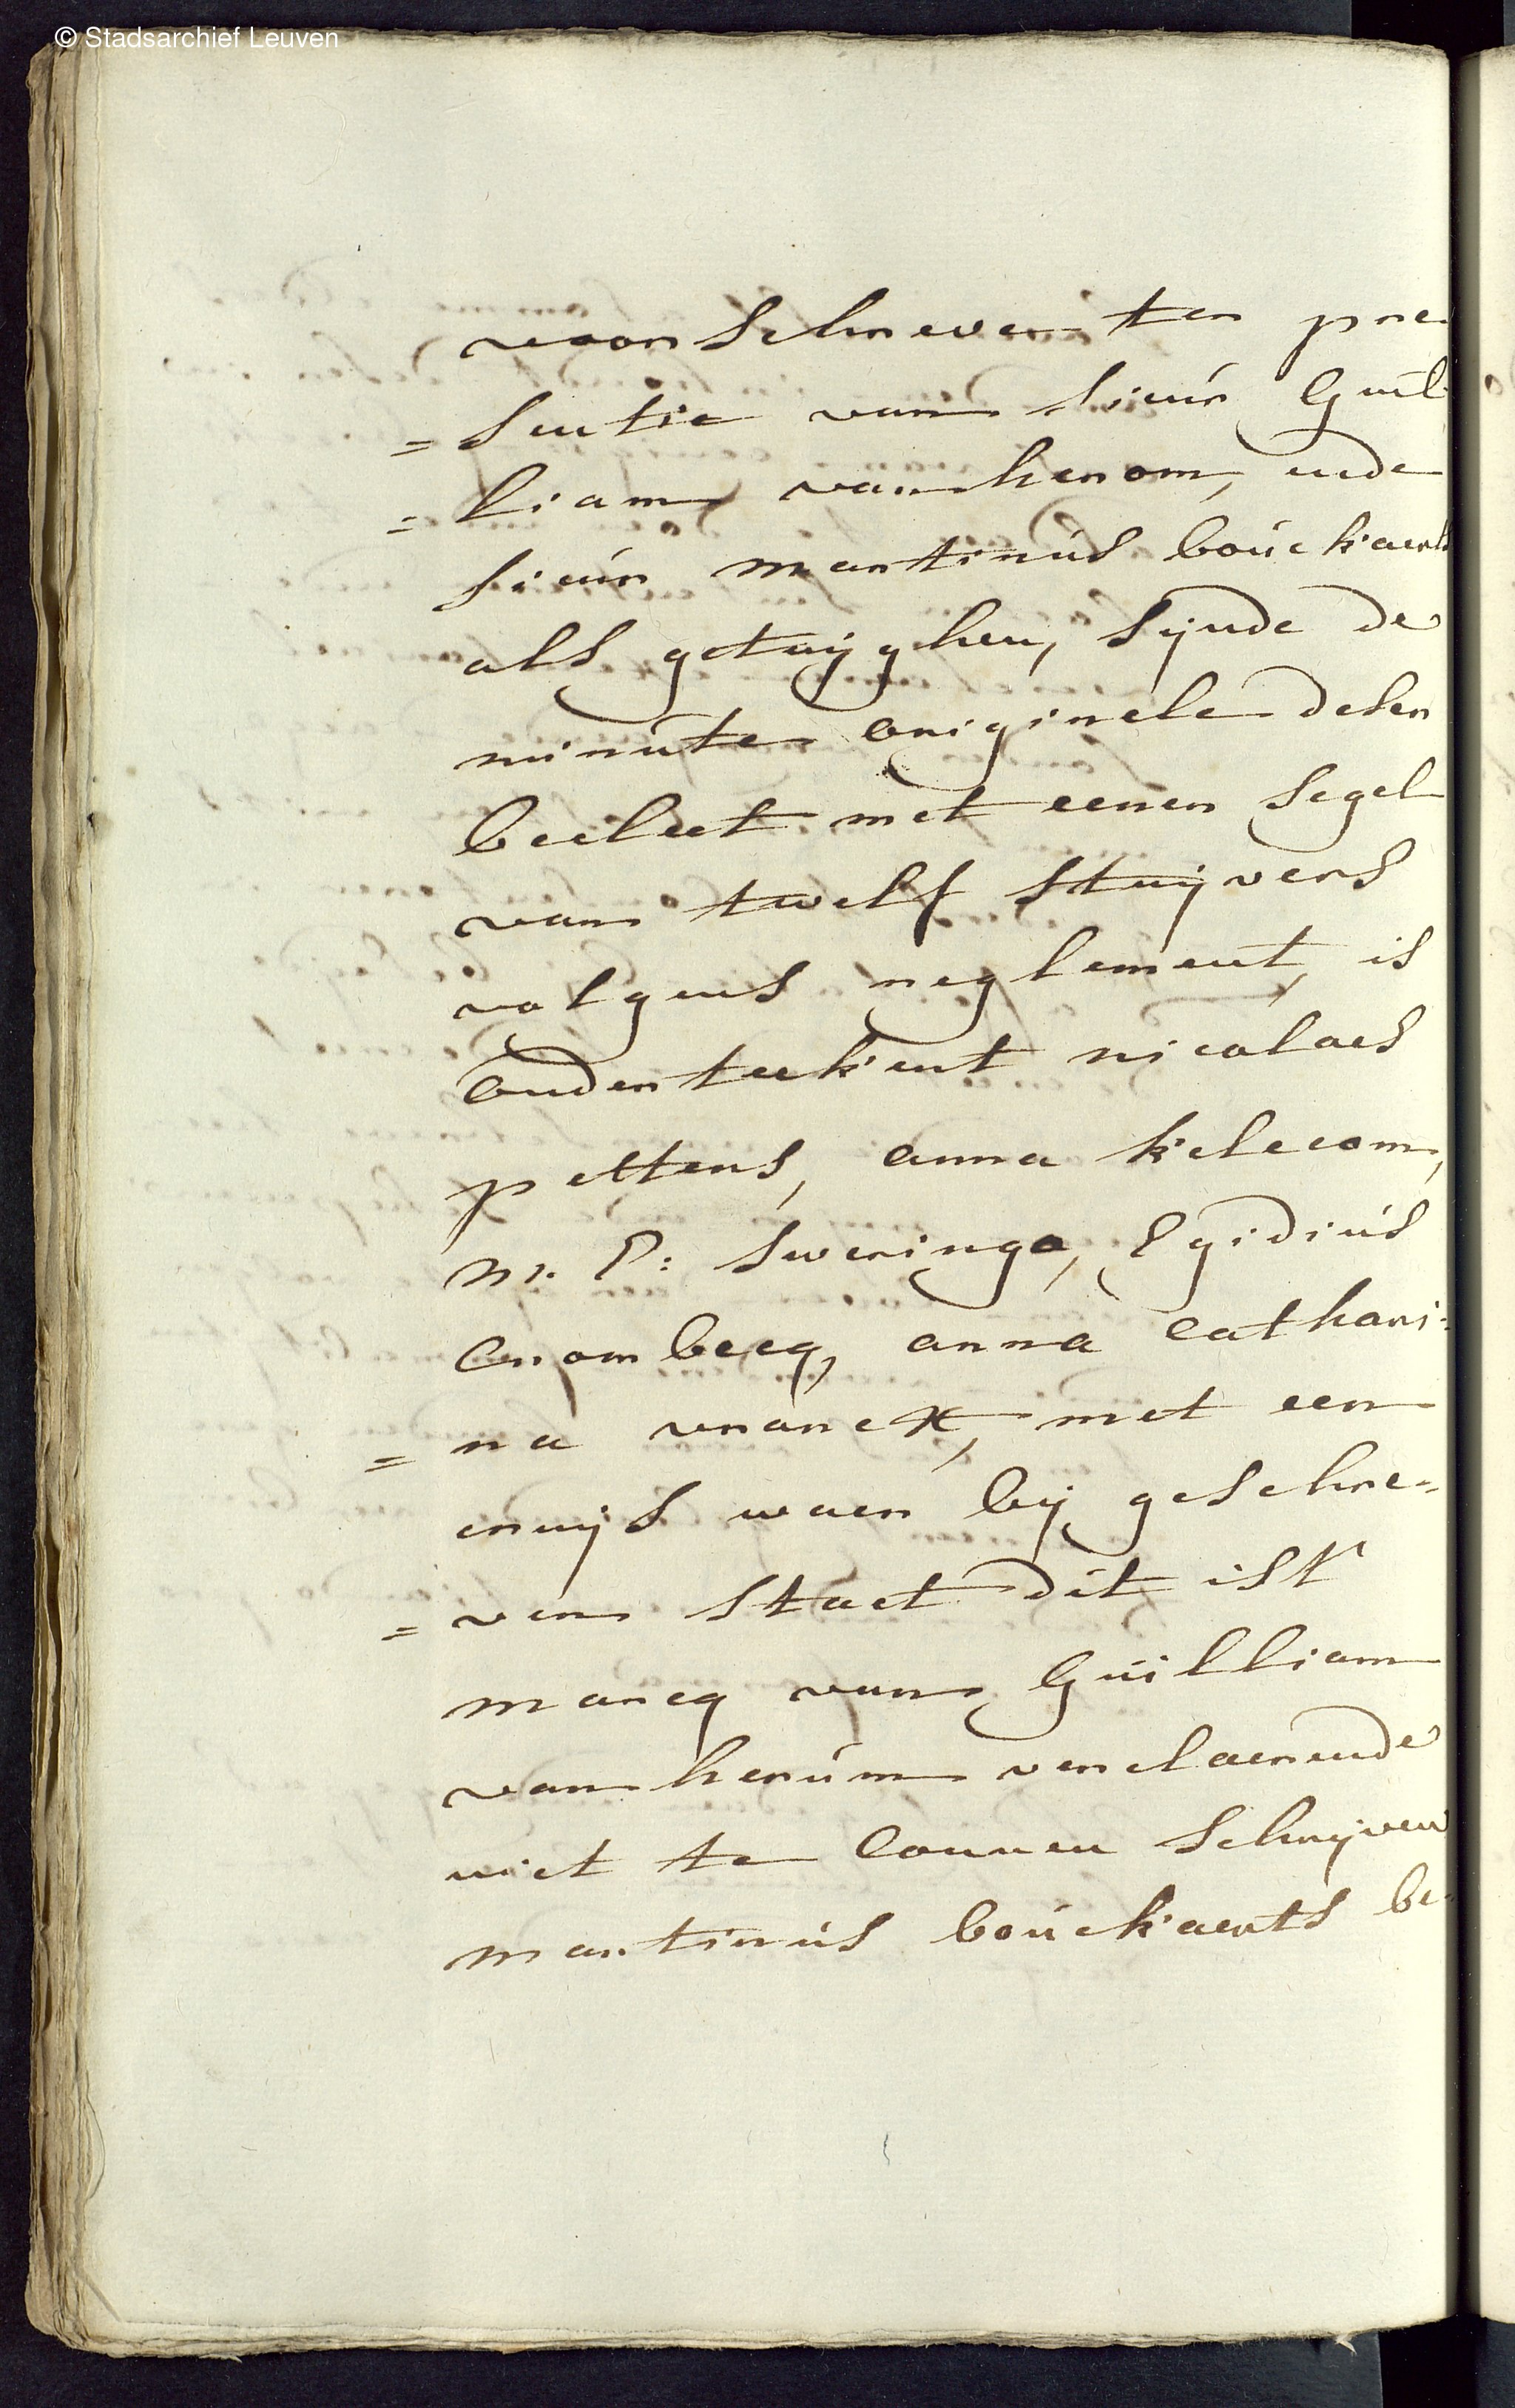 © Stadsarchief Leuven
voorschreven ter pre
= sentie van sieur Guil
= liam vanherom, ende
sieur martinus bouckaerts
als getuyghen, sijnde de
minute originele deser
becleet met eenen segel
van twelf stuyvers
volgens reglement, is
onderteekent nicolaes
pettens, anna kelecom,
M. P: Sweringa, Egidius
Crombecq, anna cathari=
= na vranckx, met een
cruijs waer bij geschre=
= ven staet dit ist
marcq van Guilliam
vanherum verclaerende
niet te connen schrijven
martinus bouckaerts be